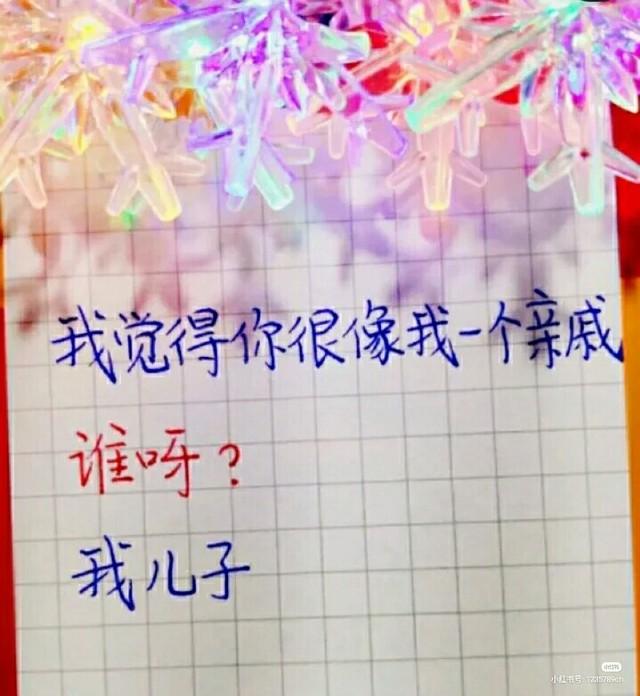 我觉得你很像我一个亲戚
谁呀？
我儿子
小红书
小红书号：1235789ch